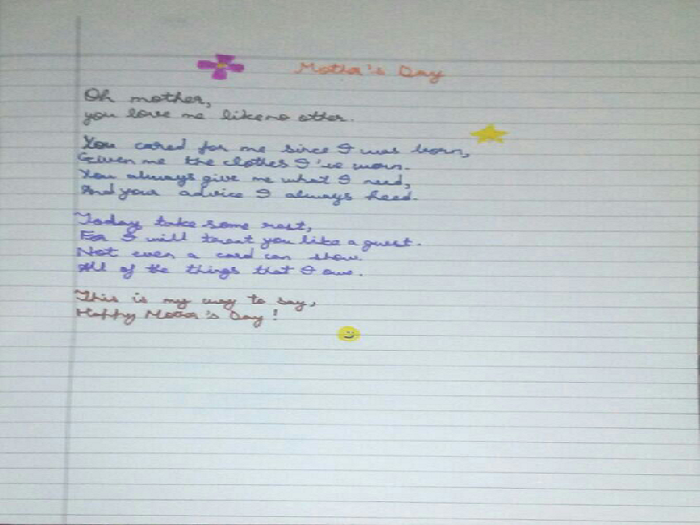 Mother's Day
Oh mother,
you love me like no other.
You cared for me since I was born,
Given me the clothes I've worn.
You always give me what I need,
And your advice I always heed.
Today take some rest,
For I will treat you like a guest.
Not even a card can show
All of the things that I owe.
This is my way to say,
Happy Mother's Day!